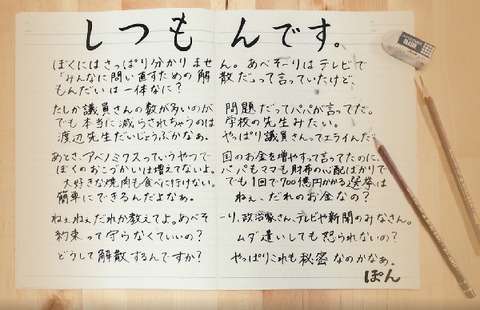 しつもんです。
ぼくにはさっぱり分かりません。あべそーりはテレビで
「みんなに問い直すための解散だ」って言っていたけど、
もんだいは一体なに?
たしか議員さんの数が多いのが問題だってパパが言ってた。
でも本当に減らされちゃうのは学校の先生みたい。
渡辺先生だいじょうぶかなぁ。やっぱり議員さんってエライんだ。
あとさ、アベノミクスっていうやつで国のお金を増やすって言ってたのに、
ぼくのおこづかいは増えてないよ。パパもママも財布の心配ばかりで
大好きな焼肉も食べに行けない。でも1回で700億円かかる選挙は
簡単にできるんだよなぁ。ねぇ、だれのお金なの?
ねぇねぇ、だれか教えてよ。あべそーり、政治家さん、テレビや新聞のみなさん。
約束って守らなくていいの?ムダ遣いしても怒られないの?
どうして解散するんですか?やっぱりこれも秘密なのかなぁ。
ぽん